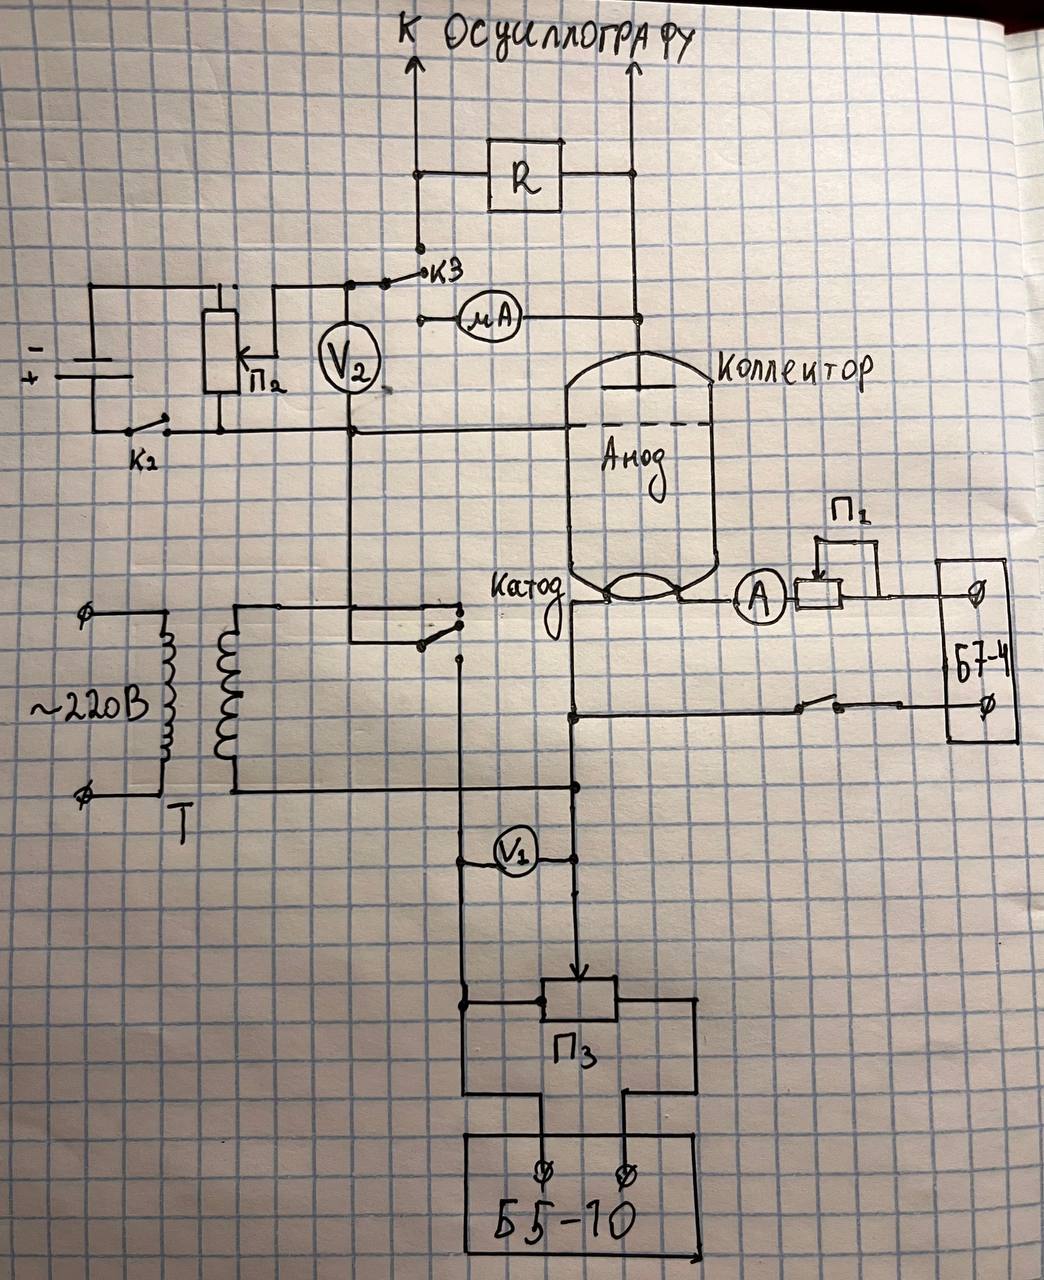 К ОСЦИЛЛОГРАФУ
R
К3
мА
-
+
П2
V2
Коллектор
К2
Анод
П1
Катод
А
~220В
Б7-4
Т
V1
П3
Б5-10